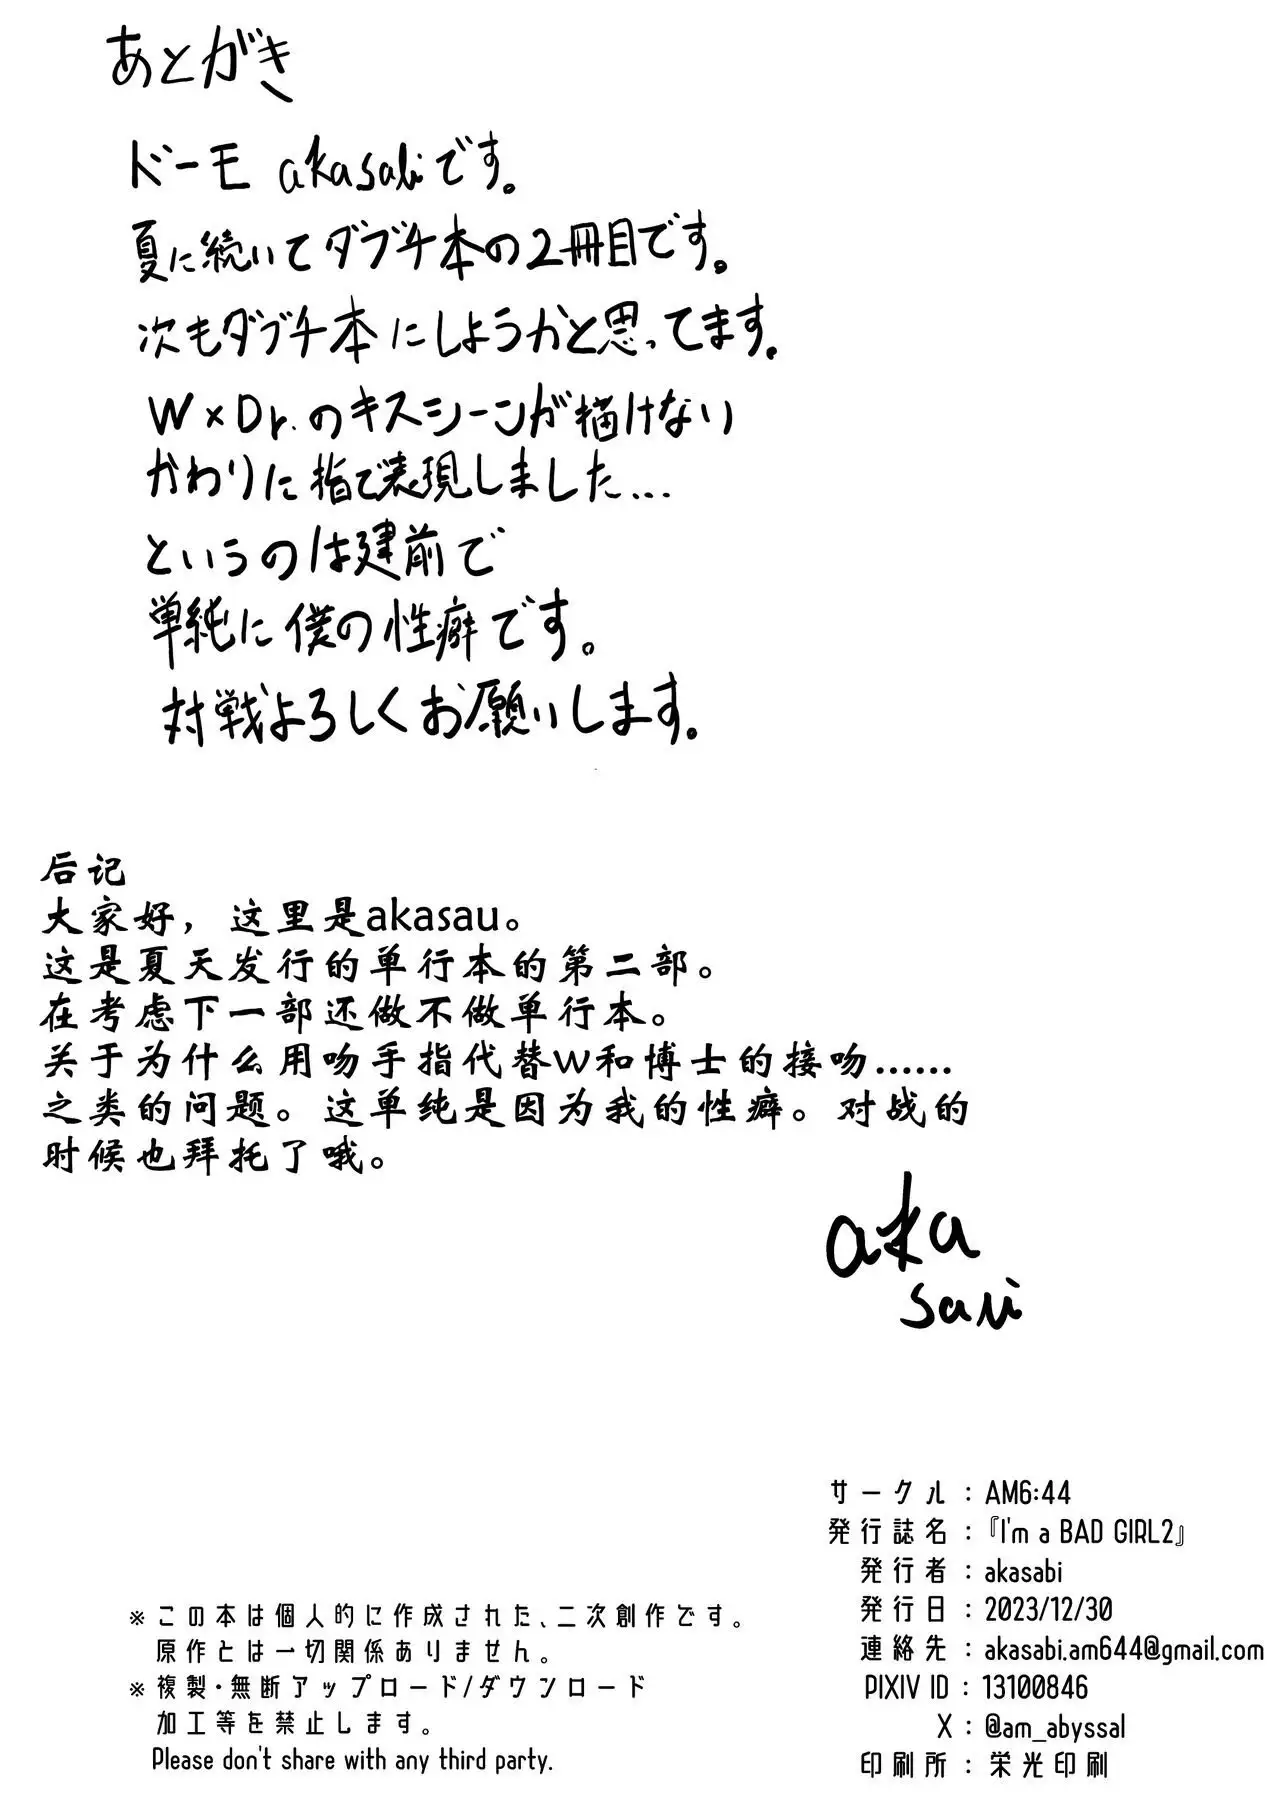 あとがき
ドーモ akasabiです。
夏に続いてダブチ本の2冊目です。
次もダブチ本にしようかと思ってます。
W×Dr.のキスシーンが描けない
かわりに指で表現しました...
というのは建前で
単純に僕の性癖です。
対戦よろしくお願いします。
后记
大家好，这里是akasau。
这是夏天发行的单行本的第二部。
在考虑下一部还做不做单行本。
关于为什么用吻手指代替w和博士的接吻……
之类的问题。这单纯是因为我的性癖。对战的
时候也拜托了哦。
aka
sabi
サークル：AM6:44
発行誌名：『I'm a BAD GIRL2』
発行者：akasabi
発行日：2023/12/30
連絡先：akasabi.am644@gmail.com
PIXIV ID：13100846
X：@am_abyssal
印刷所：栄光印刷
※この本は個人的に作成された、二次創作です。
原作とは一切関係ありません。
※複製・無断アップロード/ダウンロード
加工等を禁止します。
Please don't share with any third party.